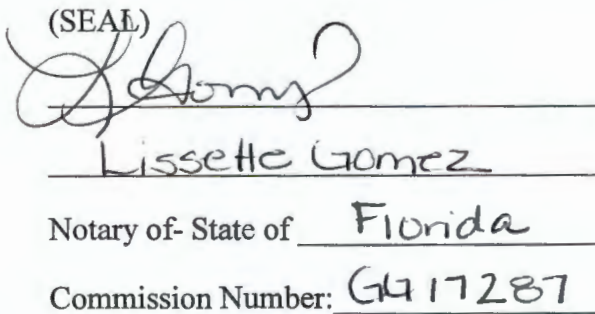 (SEAL)
Lissette Gomez
Notary of- State of Florida
Commission Number: GG17287